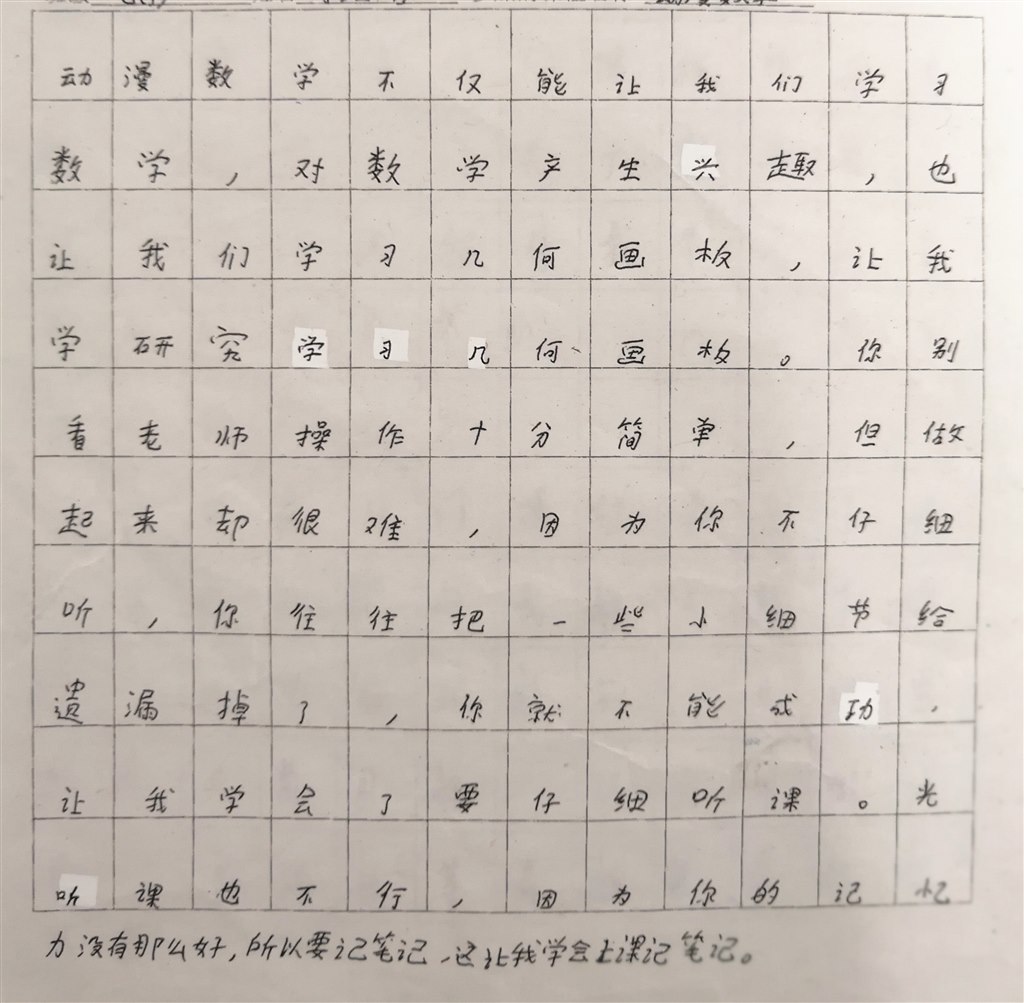 动漫数学不仅能让我们学习
数学，对数学产生兴趣，也
让我们学习几何画板，让我
学研究学习几何画板。你别
看老师操作十分简单，但做
起来却很难，因为你不仔细
听，你往往把一些小细节给
遗漏掉了，你就不能成功，
让我学会了要仔细听课。光
听课也不行，因为你的记忆
力没有那么好，所以要记笔记，这让我学会上课记笔记。